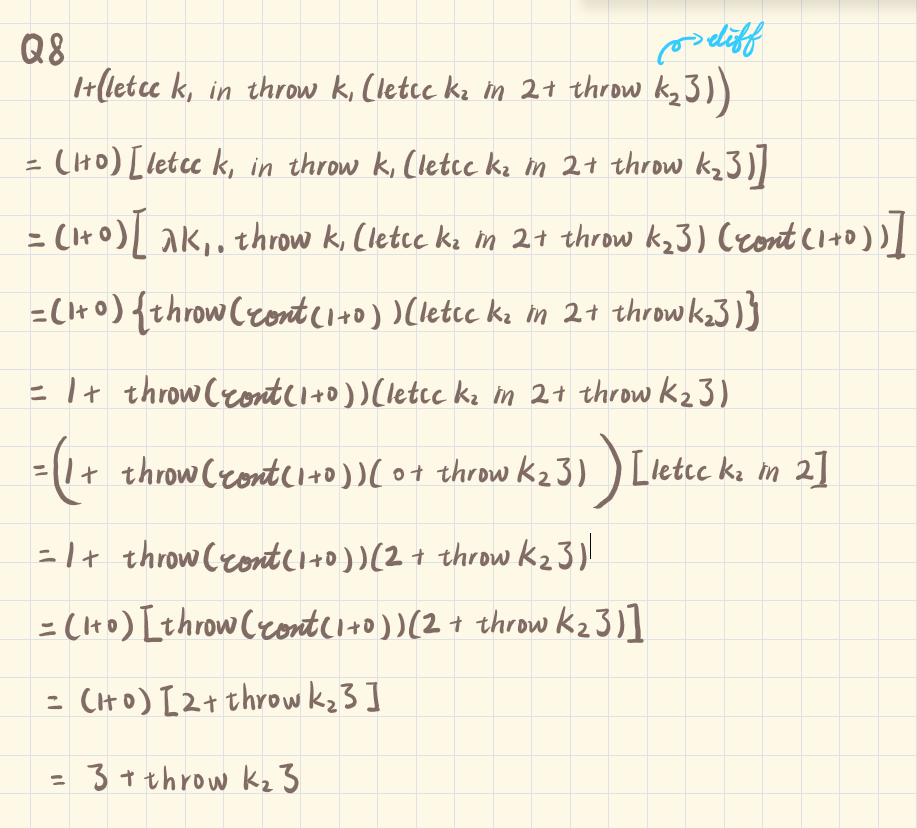 Q8
→ diff
1+(letcc k₁ in throw k₁ (letcc k₂ in 2+ throw k₂ 3))
= (1+○) [letcc k₁ in throw k₁ (letcc k₂ in 2+ throw k₂ 3)]
= (1+○) [ λK₁. throw k₁ (letcc k₂ in 2+ throw k₂ 3) (cont (1+○))]
= (1+○) {throw (cont (1+○)) (letcc k₂ in 2+ throw k₂ 3)}
= 1+ throw (cont (1+○)) (letcc k₂ in 2+ throw K₂ 3)
= (1+ throw (cont (1+○)) ( ○+ throw K₂ 3) ) [letcc k₂ in 2]
= 1+ throw (cont (1+○)) (2 + throw K₂ 3)
= (1+○) [throw (cont (1+○)) (2 + throw K₂ 3)]
= (1+○) [2+ throw k₂ 3 ]
= 3 + throw k₂ 3